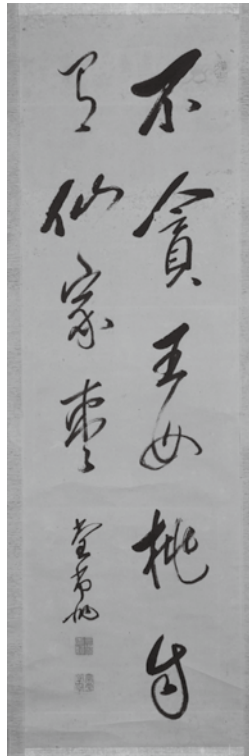 不貪王母桃自
有仙家棗